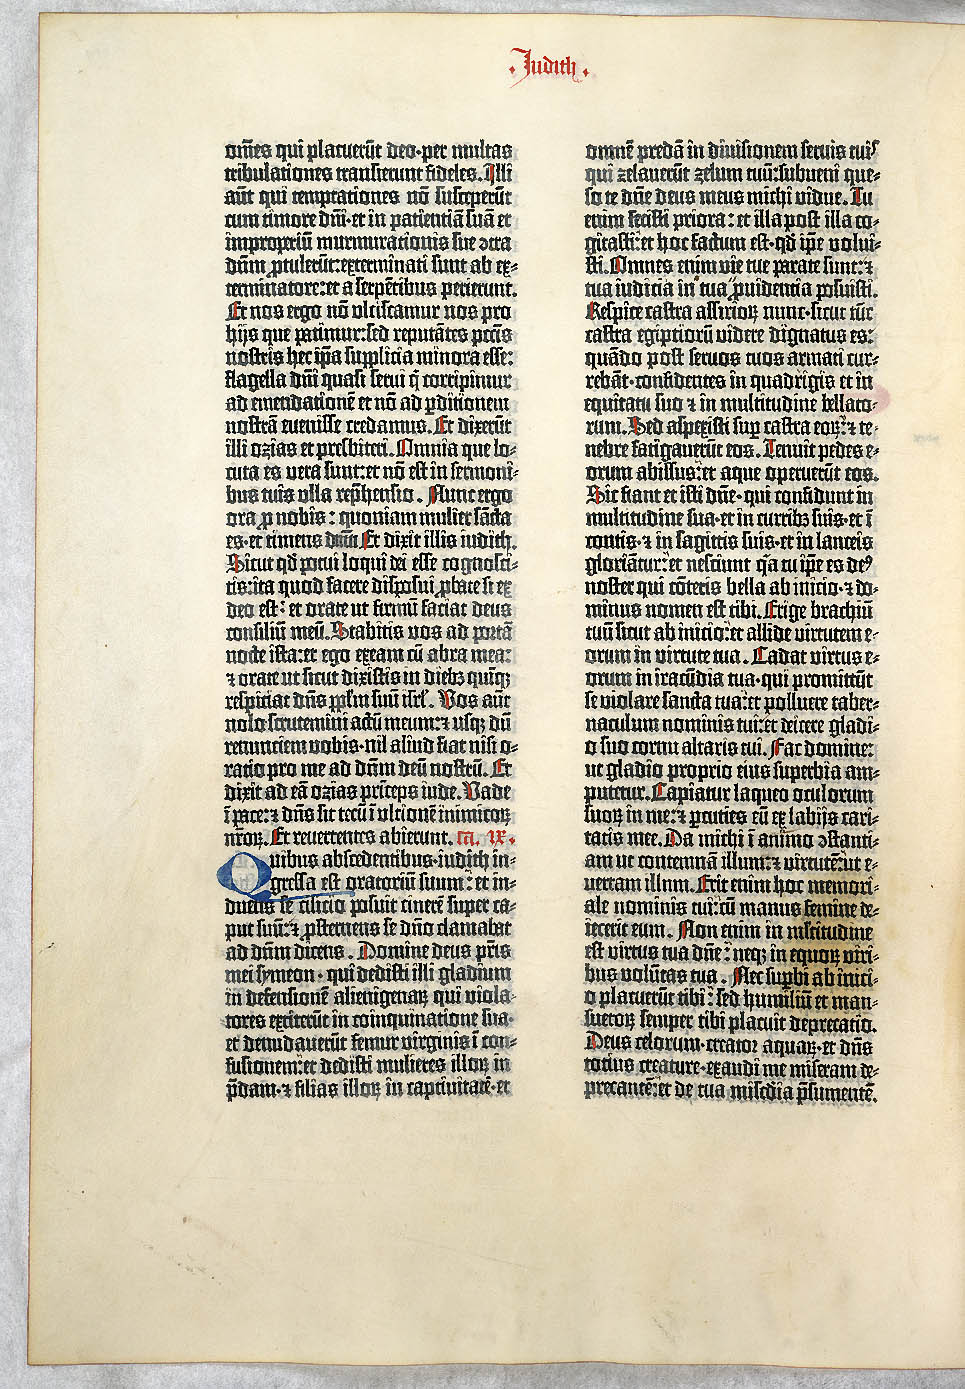 Judith
om̄es qui placuerūt deo·per multas
tribulationes transierunt fideles. Illi
aūt qui temptationes nō susceperūt
cum timore dn̄i·et in patientiā suā et
improperiū murmurationis sue ↄtra
dn̄m ꝓtulerūt:exterminati sunt ab ex-
terminatore:et a serpētibus perierunt.
Et nos ergo nō ulciscamur nos pro
hijs que patimur:sed reputātes pctīs
nostris hec ip̄a supplicia minora esse:
flagella dn̄i quasi serui q̄ corripimur
ad emēdationē et nō ad ꝑditionem
nostrā euenisse credamus. Et dixerūt
illi ozias et presbiteri. Omnia que lo-
cuta es uera sunt:et nō est in sermoni-
bus tuis ulla rep̄hensio. Nunc ergo
ora ꝓ nobis: quoniam mulier sācta
es·et timens deum Et dixit illis iudith.
Sicut qd̄ potui loqui dei esse cognosci-
tis:ita quod facere disposui ꝓbate si ex
deo est: et orate ut firmū faciat deus
consiliū meū. Stabitis uos ad portā
nocte ista:et ego exeam cū abra mea:
⁊ orate ut sicut dixistis in diebꝫ quīqꝫ
respiciat dn̄s pp̄lm suū isrl̄. Vos aūt
nolo scrutemini actū meum:⁊ usqꝫ dū
renunciem uobis·nil aliud fiat nisi o-
ratio pro me ad dn̄m deū nostrū. Et
dixit ad eā ozias prīceps iude. Vade
ī pace:⁊ dn̄s sit tecū ī ultionē inimicoꝝ
nr̄oꝝ. Et reuertentes abierunt. ca. ix.
Quibus abscedentibus·iudith in-
gressa est oratoriū suum: et in-
duens se cilicio posuit cinerē super ca-
put suū:⁊ ꝓsternens se dn̄o clamabat
ad dn̄m dicens. Domine deus pr̄is
mei symeon· qui dedisti illi gladium
in defensionē alienigenaꝝ qui uiola-
tores extiterūt in coinquinatione sua·
et denudauerūt femur uirginis ī con-
fusionem:et dedisti mulieres illoꝝ in
p̄dam·⁊ filias illoꝝ in captiuitatē·et
omnē predā in diuisionem seruis tuis
qui zelauerūt zelum tuū:subueni que-
so te dn̄e deus meus michi uidue. Tu
enim fecisti priora: et illa post illa co-
gitasti:et hoc factum est·qd̄ ip̄e uolui-
sti. Omnes enim uie tue parate sunt:⁊
tua iudicia in tua ꝓuidentia posuisti.
Respice castra assirioꝝ nunc·sicut tūc
castra egiptiorū uidere dignatus es:
quādo post seruos tuos armati cur-
rebāt·confidentes in quadrigis et in
equitatu suo ⁊ in multitudine bellato-
rum. Sed aspexisti suꝑ castra eoꝝ:⁊ te-
nebre fatigauerūt eos. Tenuit pedes e-
orum abissus:et aque operuerūt eos.
Sic fiant et isti dn̄e· qui confidunt in
multitudine sua·et in curribꝫ suis·et ī
contis·⁊ in sagittis suis·et in lanceis
gloriātur:et nesciunt qa tu ip̄e es deꝰ
noster qui cōteris bella ab inicio·⁊ do-
minus nomen est tibi. Erige brachiū
tuū sicut ab inicio:et allide uirtutem e-
orum in uirtute tua. Cadat uirtus e-
orum in iracūdia tua·qui promittūt
se uiolare sancta tua:et polluere taber-
naculum nominis tui:et deicere gladi-
o suo cornu altaris tui. Fac domine:
ut gladio proprio eius superbia am-
putetur. Capiatur laqueo oculorum
suoꝝ in me:⁊ ꝑcuties eū ex labijs cari-
tatis mee. Da michi ī animo ↄstanti-
am ut contemnā illum:⁊ uirtutē:ut e-
uertam illum. Erit enim hoc memori-
ale nominis tui:cū manus femine de-
iecerit eum. Non enim in multitudine
est uirtus tua dn̄e: neqꝫ in equoꝝ uiri-
bus uolūtas tua. Nec suꝑbi ab inici-
o placuerūt tibi: sed humiliū et man-
suetoꝝ semper tibi placuit deprecatio.
Deus celorum·creator aquaꝝ·et dn̄s
totius creature·exaudi me miseram de-
precantē:et de tua mīscd̄ia p̄sumentē.